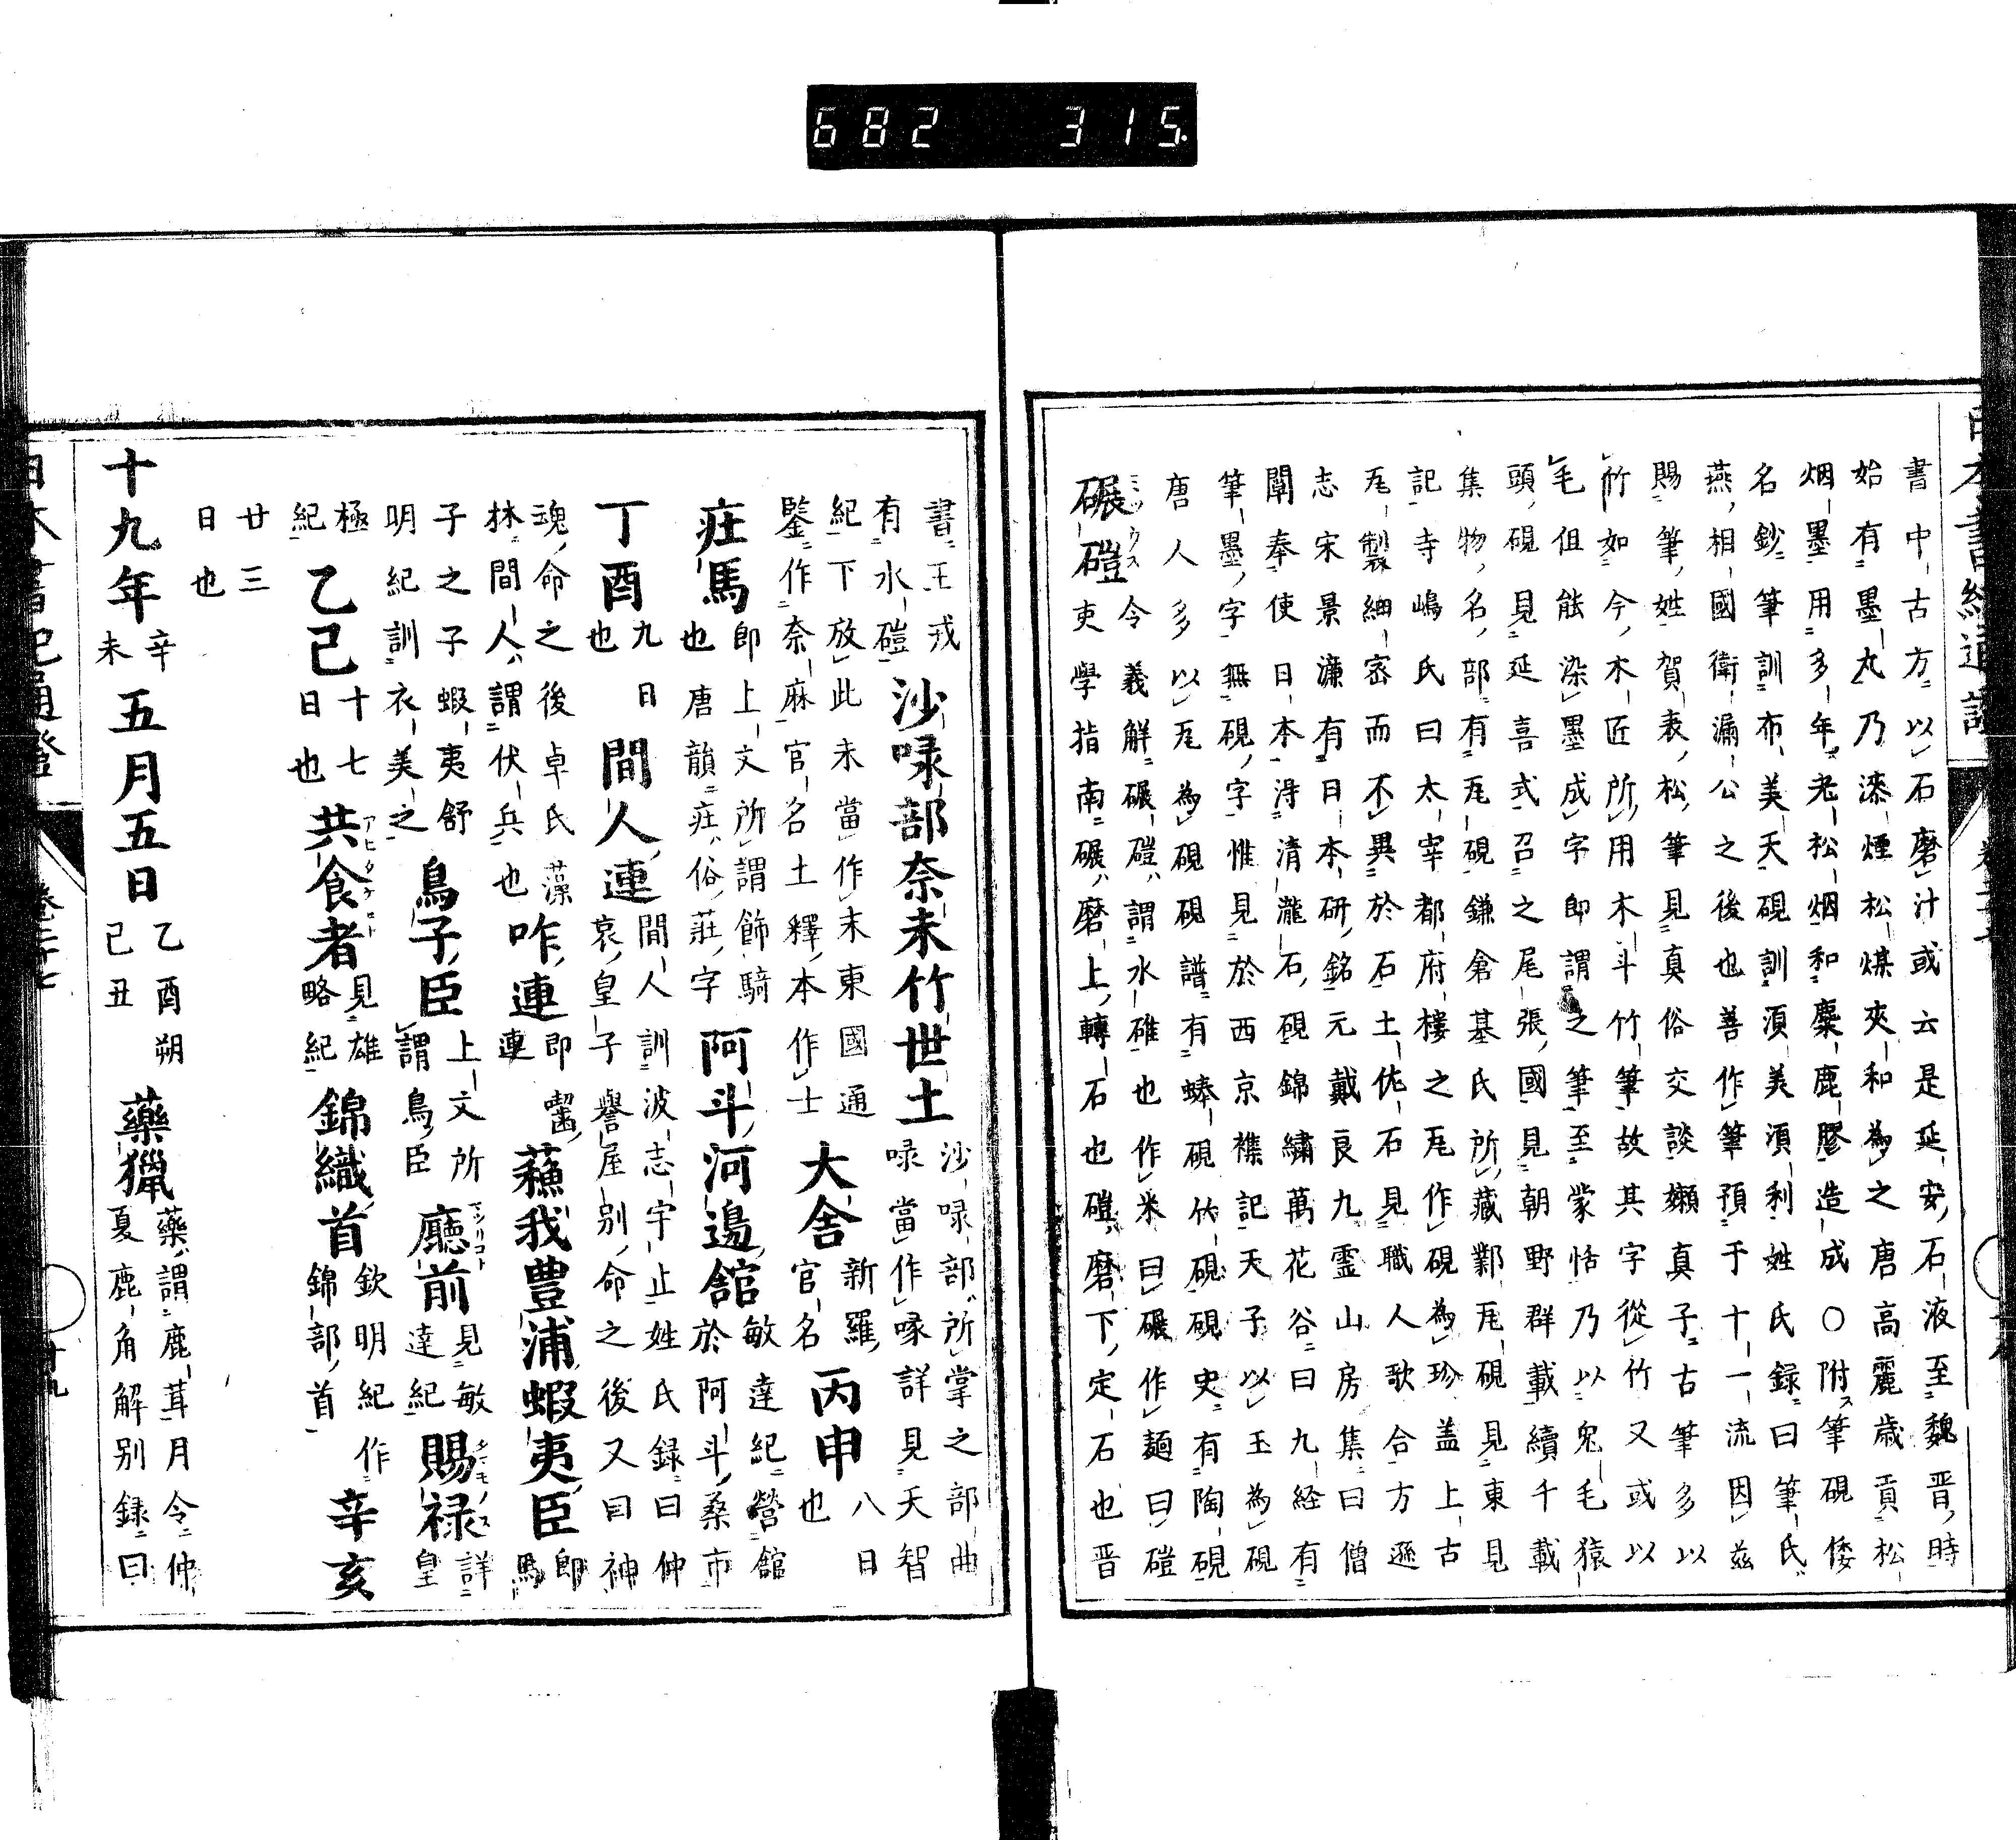 682 315
書中古方以石磨汁或云是延安石液至魏晋時
始有墨丸乃漆煙松煤夾和為之唐高麗歳貢松
烟墨用多年老松烟和麋鹿膠造成〇附筆硯倭
名鈔筆訓布美天硯訓須美須利姓氏録曰筆氏
燕相國衛漏公之後也善作筆預于十一流因茲
賜筆姓賀表松筆見真俗交談嬾真子古筆多以
竹如今木匠所用木斗竹筆故其字從竹又或以
毛但能染墨成字即謂之筆至蒙恬乃以兔毛猿
頭硯見延喜式召之尾張國見朝野群載續千載
集物名部有瓦硯鎌倉基氏所藏鄴瓦硯見東見
記寺嶋氏曰太宰都府樓之瓦作硯為珍盖上古
瓦製細密而不異於石土佐石見職人歌合方遜
志宋景濂有日本研銘元戴良九霊山房集曰僧
闡奉使日本得清瀧石硯錦繡萬花谷曰九経有
筆墨字無硯字惟見於西京襍記天子以玉為硯
唐人多以瓦為硯硯譜有蜯硯竹硯硯史有陶硯
碾磑ミツウス令義解碾磑謂水碓也作米曰碾作麺曰磑
吏學指南碾磨上轉石也磑磨下定石也晋
書王戎有水磑
沙喙部奈末竹世士沙喙部所掌之部曲喙當作喙詳見天智
紀下放此未當作末東國通鑒作奈麻官名土釋本作士
大舍新羅官名
丙申八日也
莊馬即上文所謂飾騎也唐韻莊俗莊字
阿斗河邊館敏達紀營館於阿斗桑市
丁酉九日也
間人連間人訓波志宇止姓氏録曰仲哀皇子譽屋別命之後又曰神
魂命之後卓氏藻林間人謂伏兵也
咋連即齧連
蘓我豊浦蝦夷臣即馬
子之子蝦夷舒明紀訓衣美之
鳥子臣上文所謂鳥臣
廳前マツリコト見敏達紀
賜禄詳皇
極紀
乙己十七日也
共食者アヒタケヒト見雄略紀
錦織首欽明紀作錦部首
辛亥
廿三日也
十九年辛未五月五日乙酉朔己丑藥獵藥謂鹿茸月令仲夏鹿角解別録曰